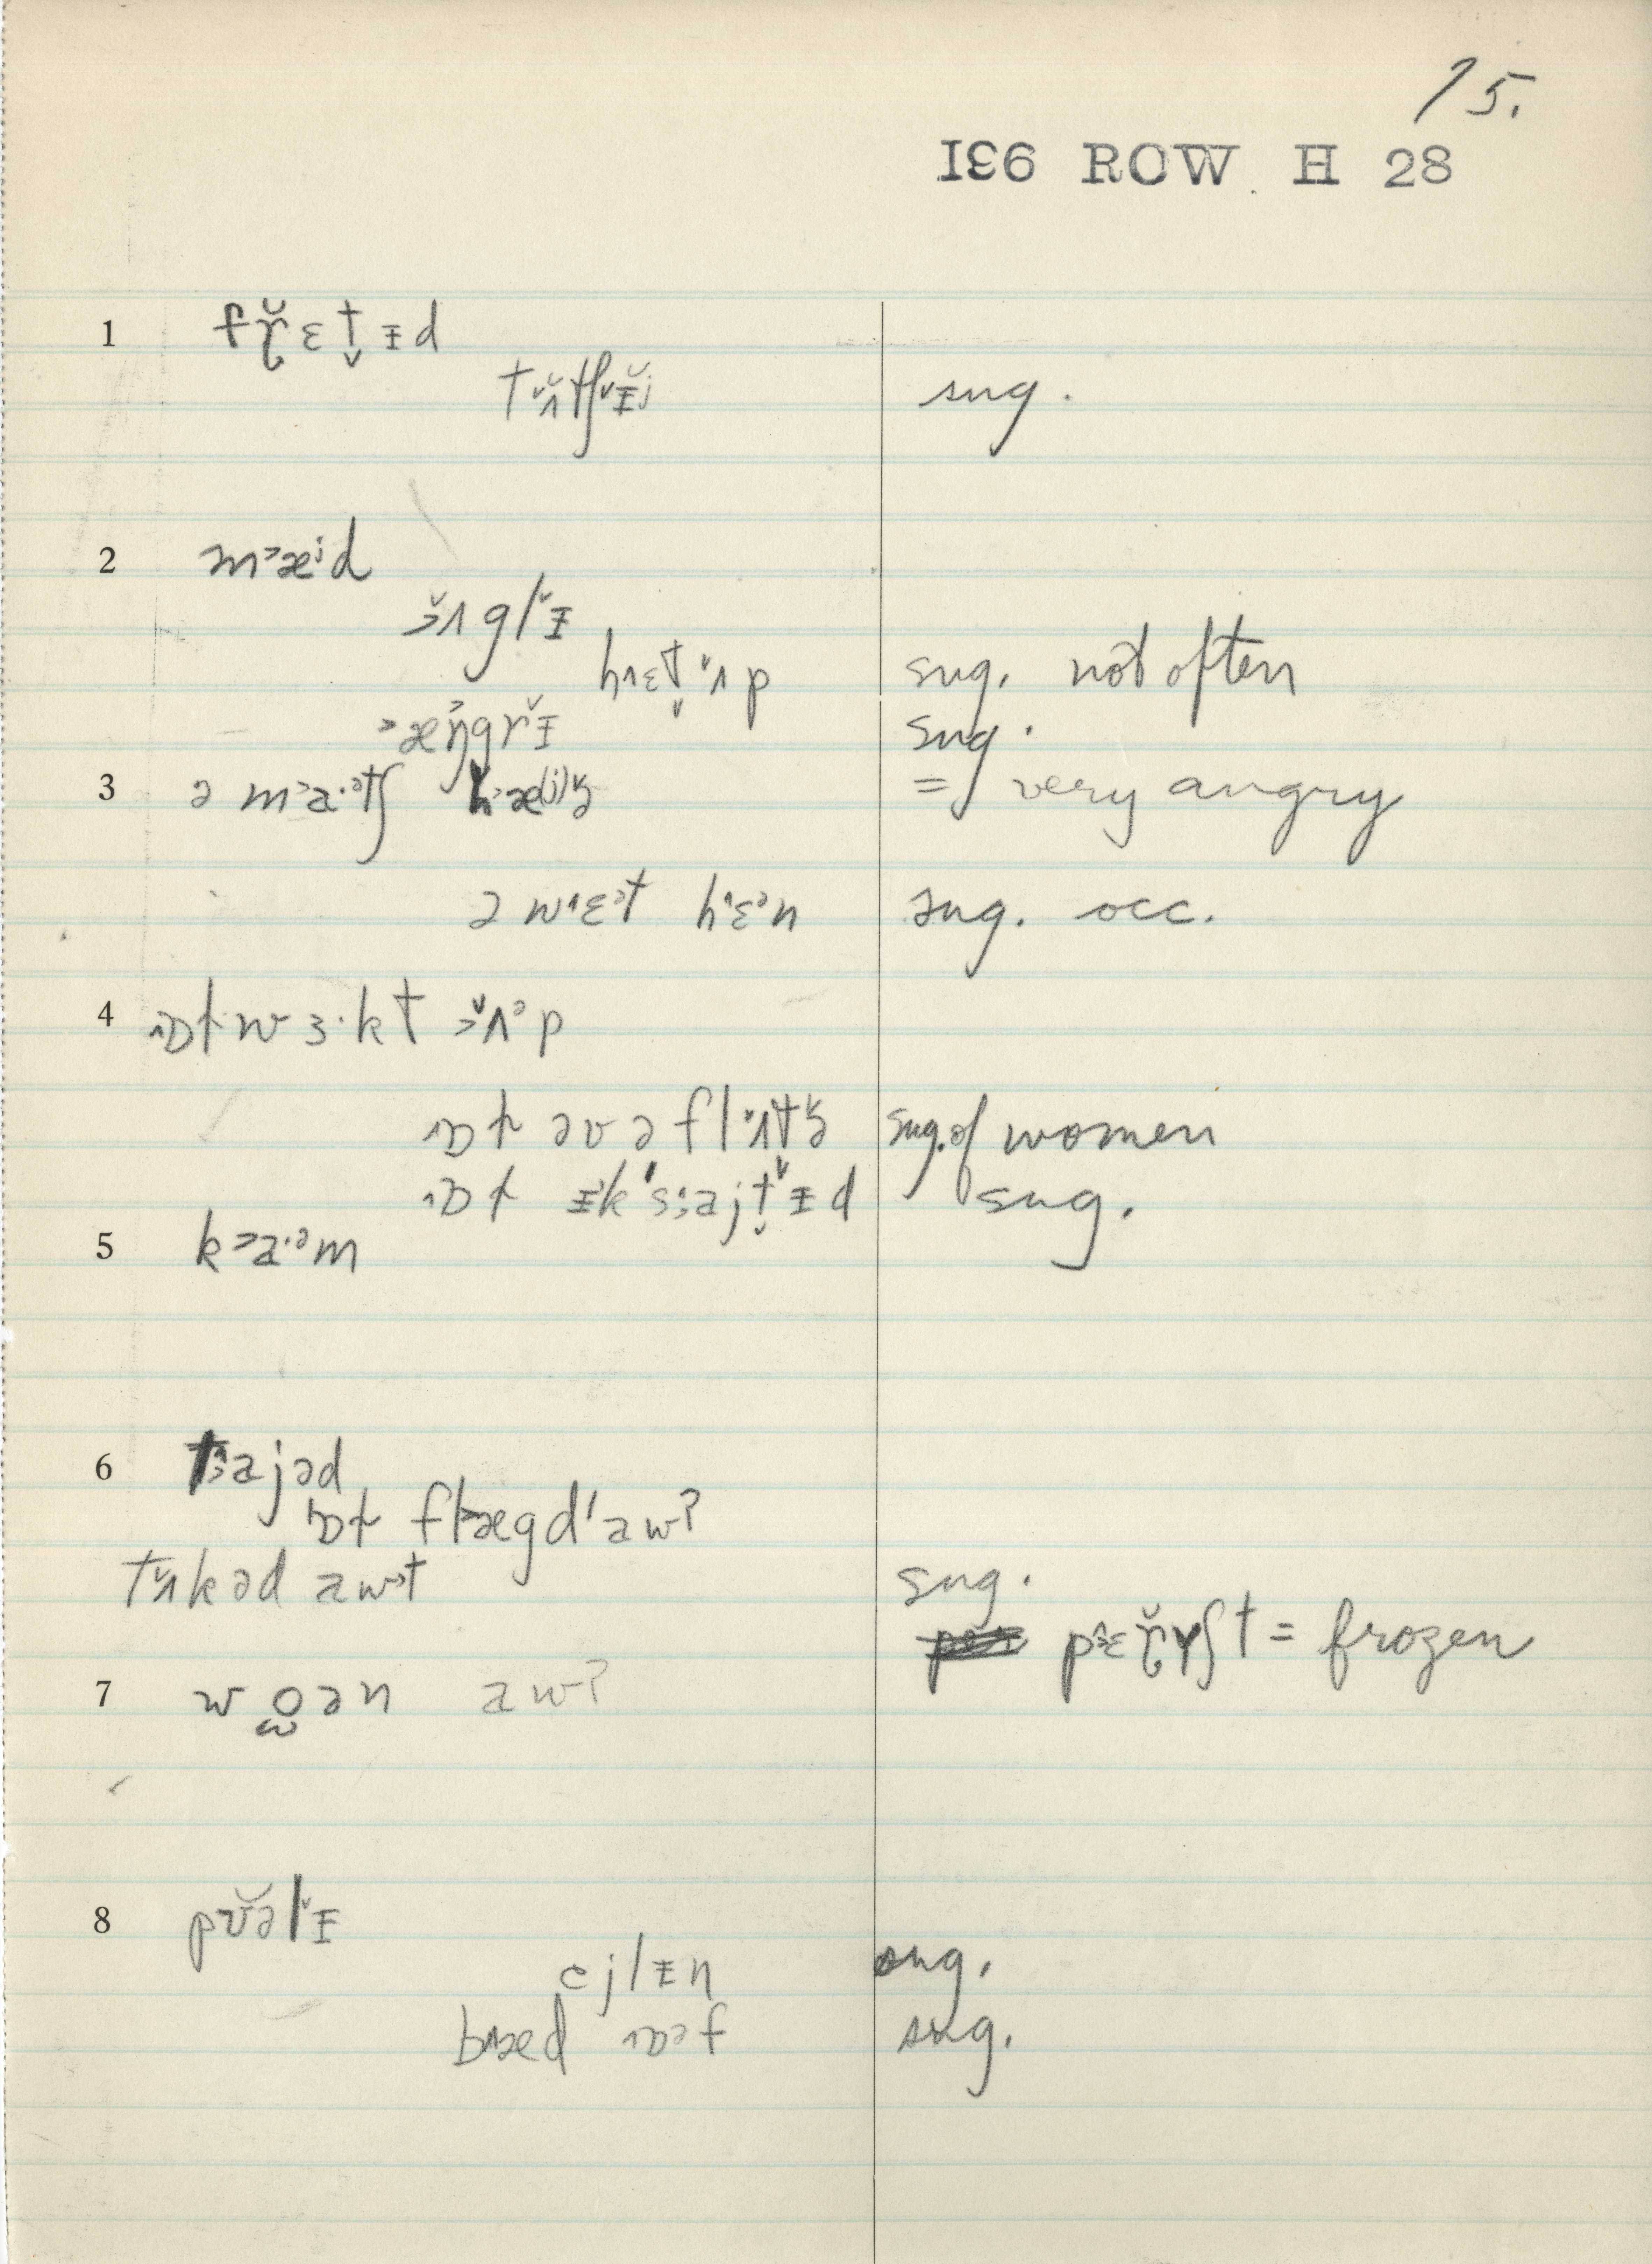 75.
IƐ6 ROW H 28
1 fɽ̆ɛt̬ɪd
tʌ̆tʃɪ̆j sug.
2 m˃æʲd
ʌ̆glɪ̆
h˄ɛt̬ʌ̆p sug. not often
˃æŋ̓grɪ̆ sug.
3 ə m˃a·ᵊtʃ h˃æ⁽ʲ⁾z̥ = very angry
ə w˄ɛᵊt h˄ɛᵊn sug. occ.
4 ˄ɒɫ w ɜ·k t ʌ̆ᵊp
˄ɒɫ əv ə flʌ̆tz̥ sug. of women
˄ɒɫ ɪk's˃ajt̬ɪ̆d sug.
5 k˃a·ᵊm
6 t˃ajəd
ɒɫ fl˃ægd'aw?
tʌ̆kəd awt sug.
p˄ɛɽ̆ɤʃt = frozen
7 w o̞ən aw?
8 pʊ̆əlɪ̆
ejlɪn sug.
b˄æd ˄ɒᵊf sug.